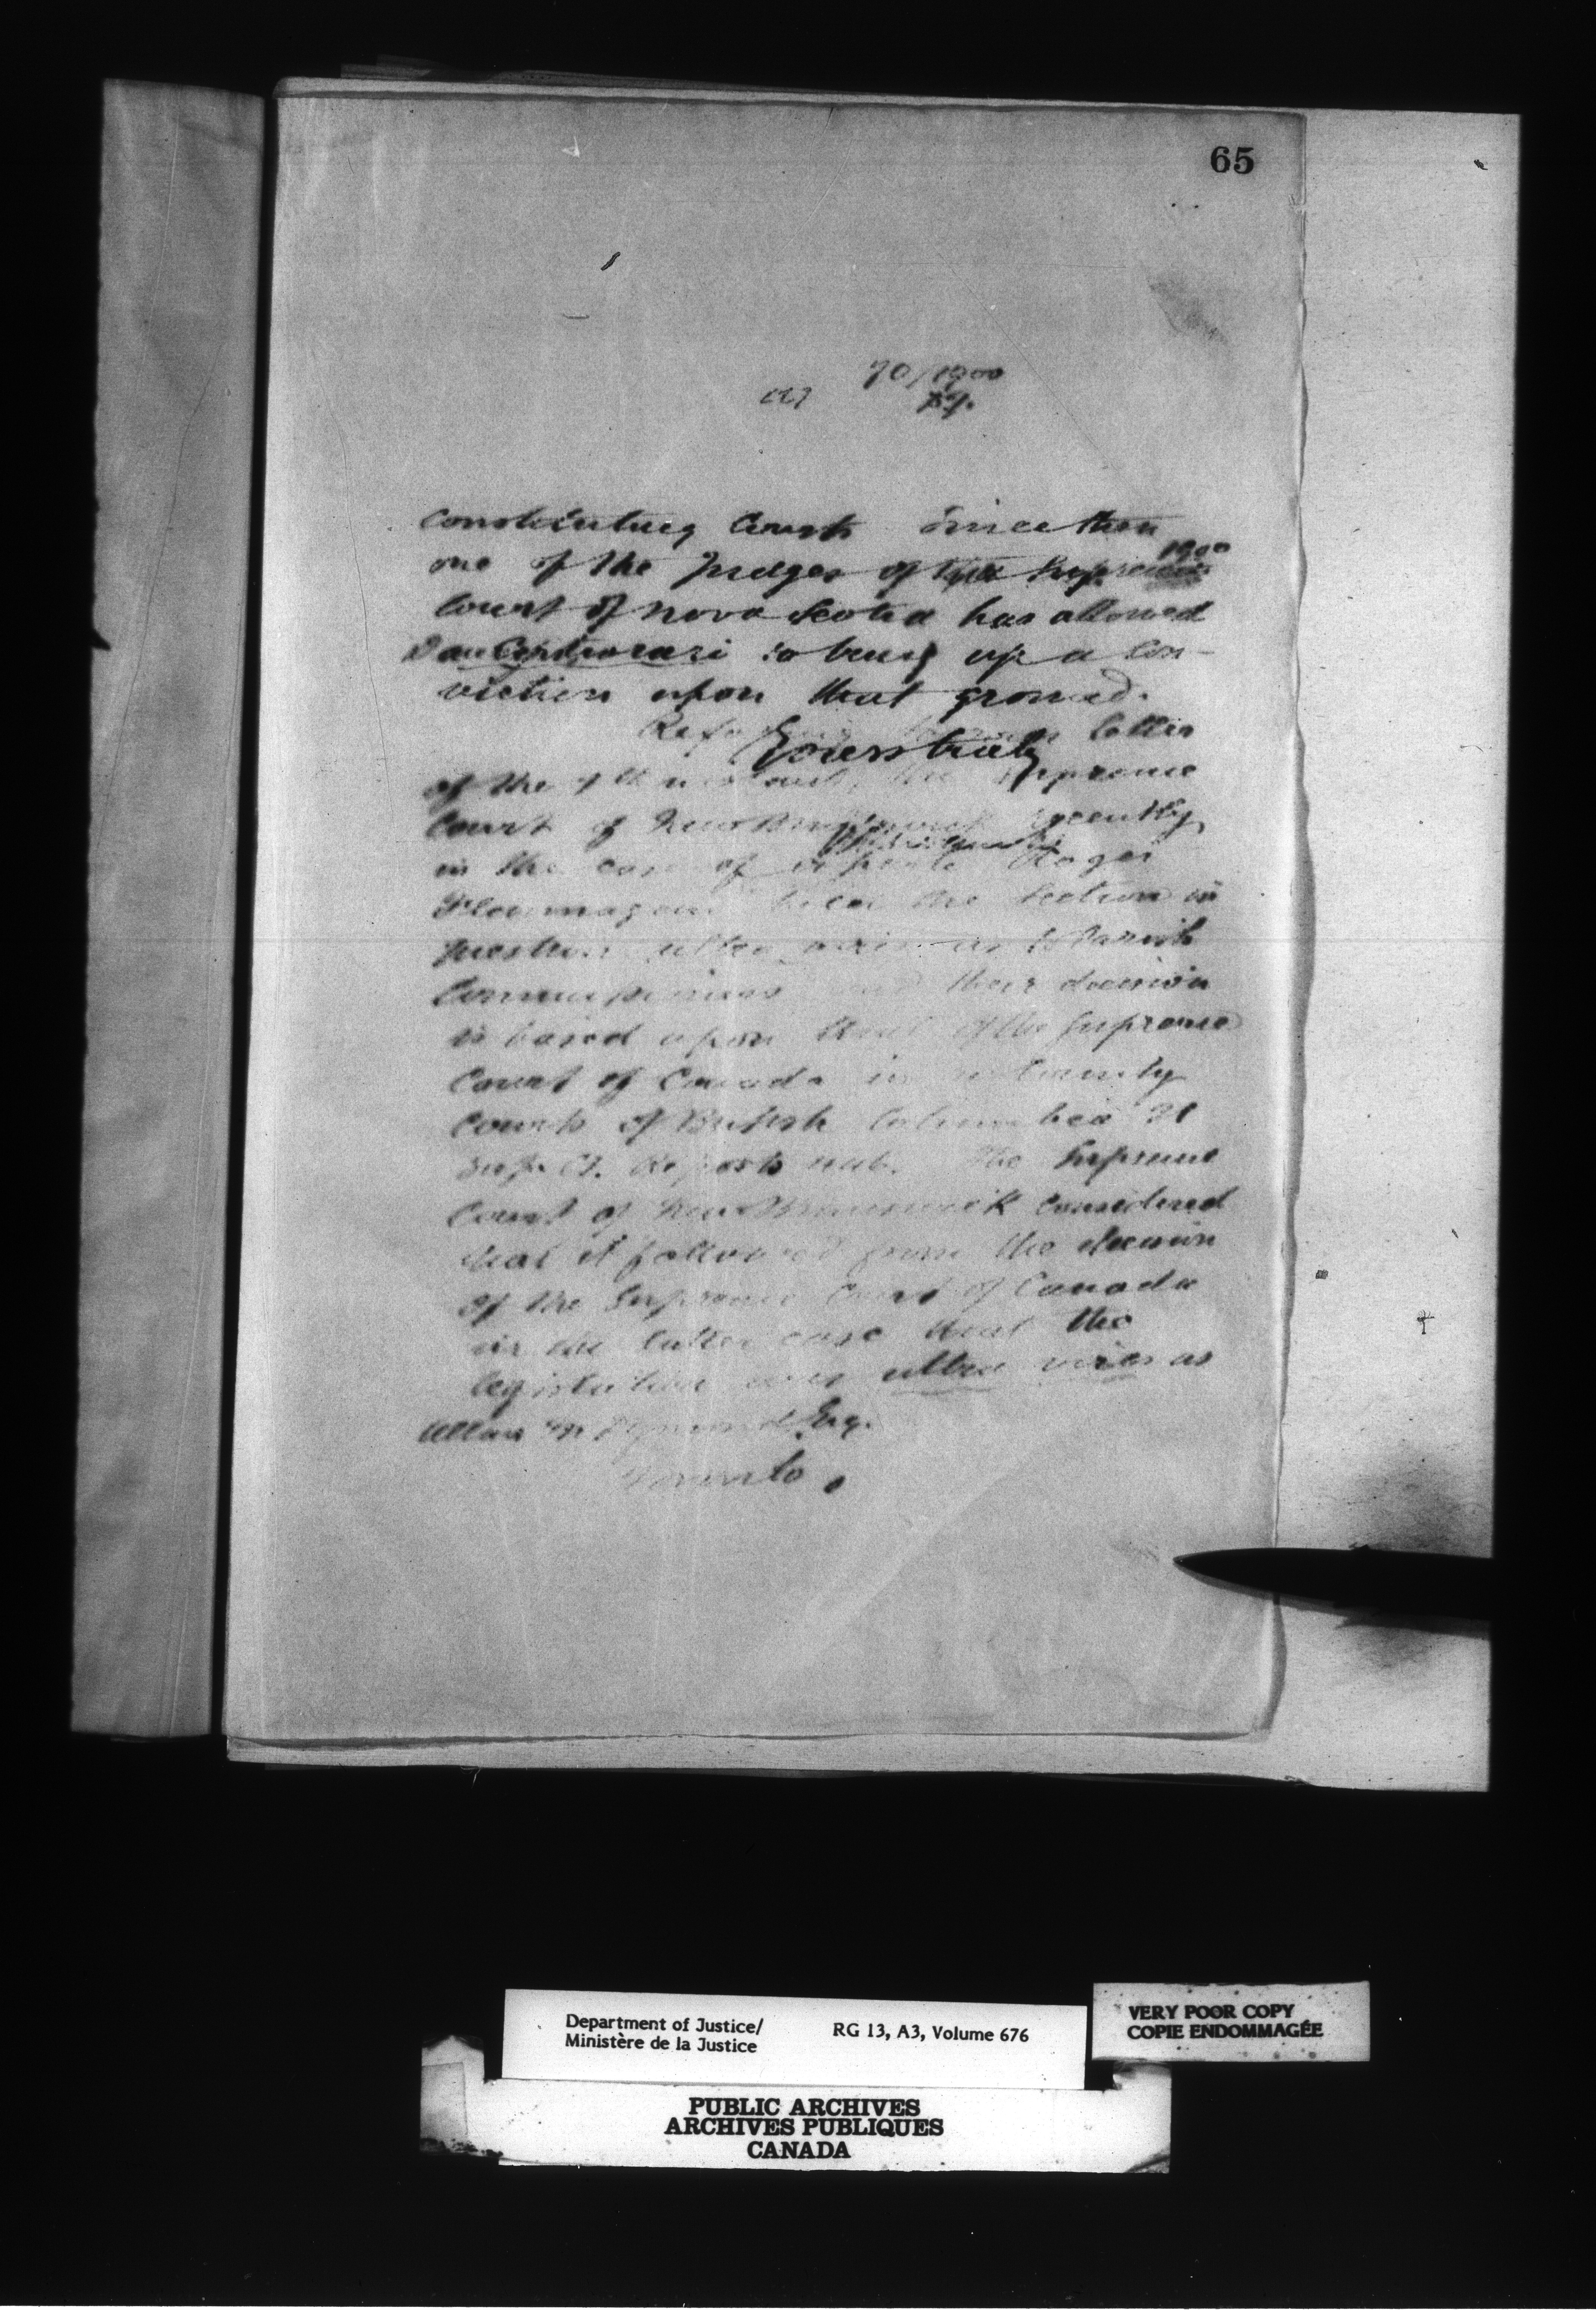 65
70/1900
constituting Courts since then
one of the Judges of the Supreme
1900
Court of Nova Scotia has allowed
Certiorari to bring up a con-
viction upon that ground.
letter
Yours truly
of the instant, the Supreme
Court of New Brunswick recently
in the case of
held the section in
question ultra vires as to Parish
Commissioners and their decision
is based upon that of the Supreme
Court of Canada in re County
Courts of British Columbia 21
Sup. Ct. Reports The Supreme
Court of New Brunswick considered
that it followed from the decision
of the Supreme Court of Canada
in the latter case that the
legislation was ultra vires as
Allan Esq.
Toronto.
Department of Justice/
Ministère de la Justice
RG 13, A3, Volume 676
VERY POOR COPY
COPIE ENDOMMAGÉE
PUBLIC ARCHIVES
ARCHIVES PUBLIQUES
CANADA